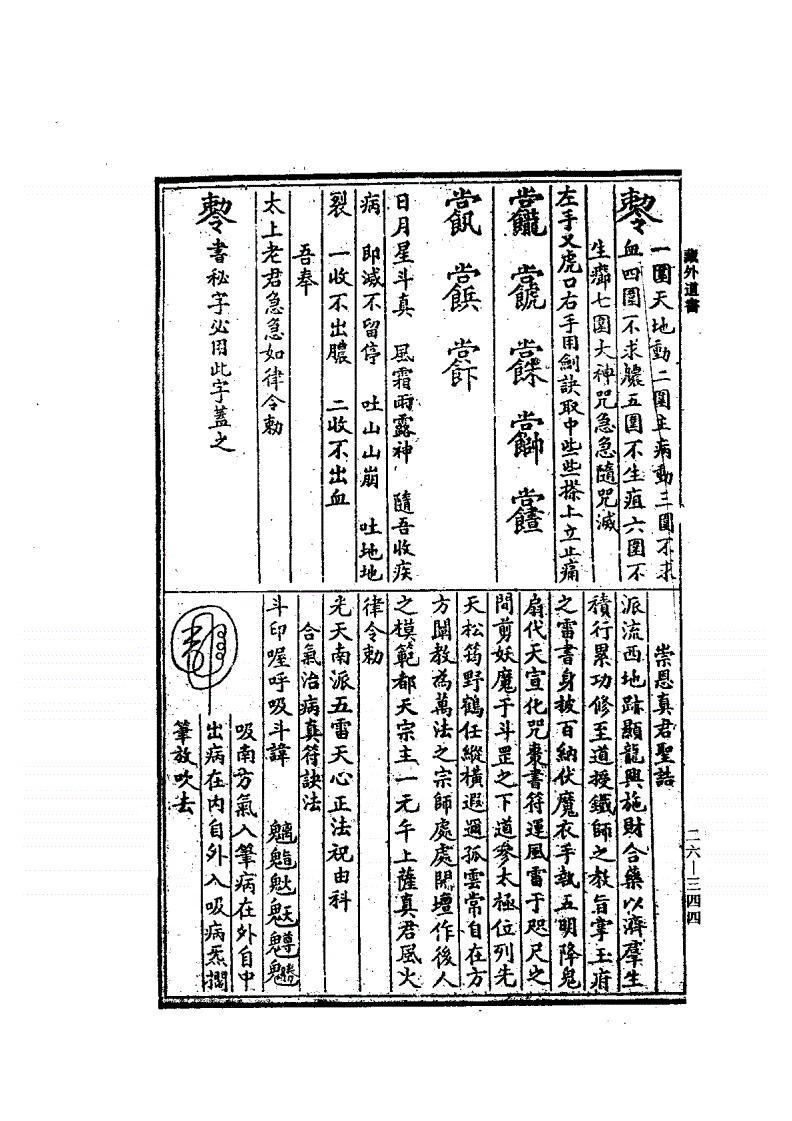 藏外道書
二六—三四四
勅令
一圈天地動二圈主病動三圈不求
血四圈不求膿五圈不生疽六圈不
生癤七圈大神咒急急隨咒滅
左手叉虎口右手用劍訣取中些些搽上立止痛
日月星斗真 風霜雨露神 隨吾收疾
病 即減不留停 吐山山崩 吐地地
裂 一收不出膿 二收不出血
吾奉
太上老君急急如律令勅
書秘字必用此字蓋之
崇恩真君聖誥
派流西地跡顯龍興施財合藥以濟羣生
積行累功修至道授鐵師之教旨掌玉府
之雷書身披百納伏魔衣手執五明降鬼
扇代天宣化咒棗書符運風雷于咫尺之
間剪妖魔于斗罡之下道參太極位列先
天松筠野鶴任縱橫遐邇孤雲常自在方
方闡教為萬法之宗師處處開壇作後人
之模範都天宗主一元千上薩真君風火
律令勅
先天南派五雷天心正法祝由科
合氣治病真符訣法
斗印喔呼吸斗諱 魒
吸南方氣入筆病在外自中
出病在內自外入吸病炁擱
筆放吹去